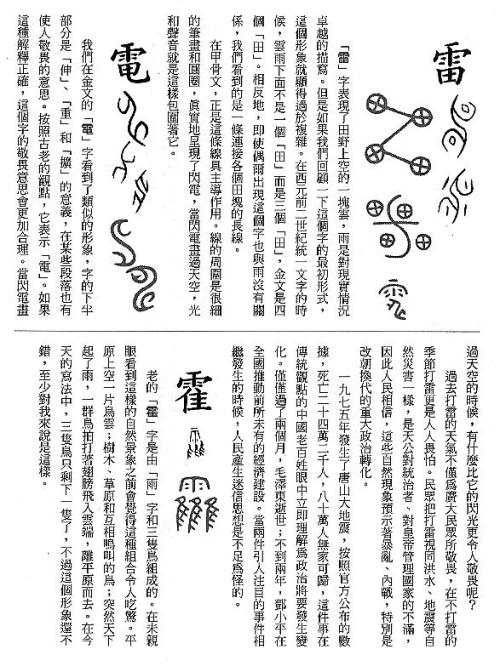 雷
「雷」字表現了田野上空的一塊雲，雨是對現實情況
卓越的描寫。但是如果我們回顧一下這個字的最初形式，
這個形象就顯得過於複雜。在西元前二世紀統一文字的時
候，雲雨下面不是一個「田」而是三個「田」，金文是四
個「田」。相反地，即使偶爾出現這個字也與雨沒有關
係，我們看到的是一條連接各個田塊的長線。
在甲骨文，正是這條線具主導作用。線的周圍是很細
的筆畫和圓圈，真實地呈現了閃電，當閃電畫過天空，光
和聲音就是這樣包圍著它。
電
我們在金文的「電」字看到了類似的形象，字的下半
部分是「伸」、「重」和「擴」的意義，在某些段落也有
使人敬畏的意思。按照古老的觀點，它表示「電」。如果
這種解釋正確，這個字的敬畏意思會更加合理。當閃電畫
過天空的時候，有什麼比它的閃光更令人敬畏呢？
過去打雷的天氣不僅為廣大民眾所敬畏，在不打雷的
季節打雷更是人人畏怕。民眾把打雷視同洪水、地震等自
然災害一樣，是天公對統治者、對皇帝管理國家的不滿，
因此人民相信，這些自然現象預示著暴亂、內戰，特別是
改朝換代的重大政治轉化。
一九七五年發生了唐山大地震，按照官方公布的數
據，死亡二十四萬二千人，八十萬人無家可歸，這件事在
傳統觀點的中國老百姓眼中立即理解為政治將要發生變
化。僅僅過了兩個月，毛澤東逝世；不到兩年，鄧小平在
全國推動前所未有的經濟建設。當兩件引人注目的事件相
繼發生的時候，人民產生迷信思想是不足為怪的。
霍
老的「霍」字是由「雨」字和三隻鳥組成的。在未親
眼看到這樣的自然景象之前會覺得這種組合令人吃驚。平
原上空一片烏雲；樹木、草原和互相鳴叫的鳥；突然天下
起了雨，一群鳥拍打著翅膀飛入雲端，離平原而去。在今
天的寫法中，三隻鳥只剩下一隻了，不過這個形象還不
錯，至少對我來說是這樣。